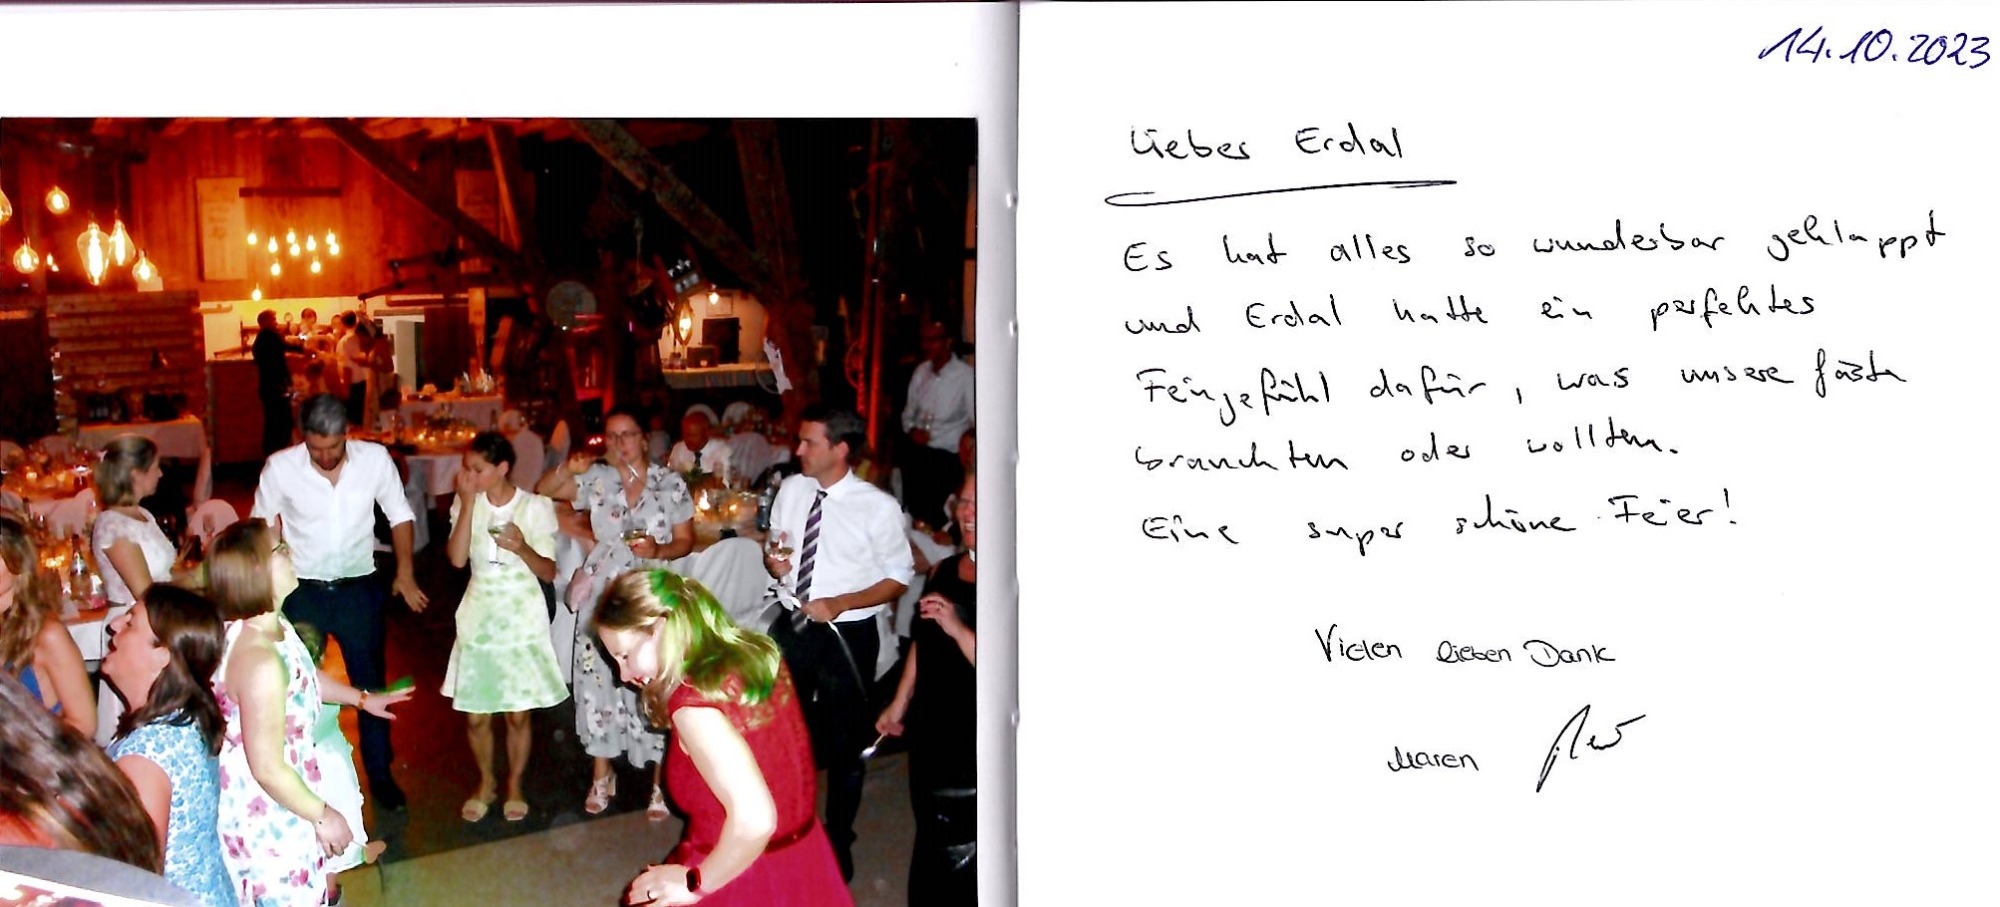 14.10.2023
Lieber Erdal
Es hat alles so wunderbar geklappt
und Erdal hatte ein perfektes
Feingefühl dafür, was unsere Gäste
brauchten oder wollten.
Eine super schöne Feier!
Vielen lieben Dank
Maren